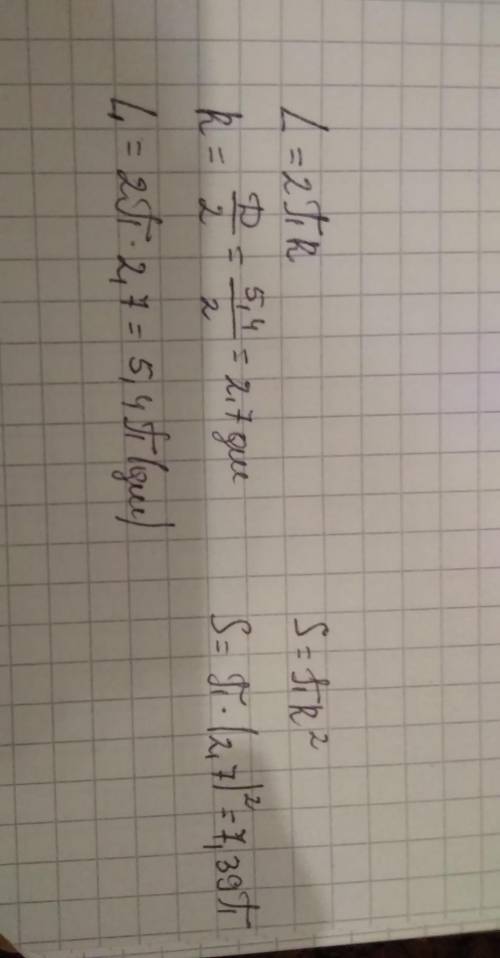 L = 2πR
R = D/2 = 5,4/2 = 2,7 дм
L = 2π · 2,7 = 5,4π (дм)
S = πR²
S = π · (2,7)² = 7,39π